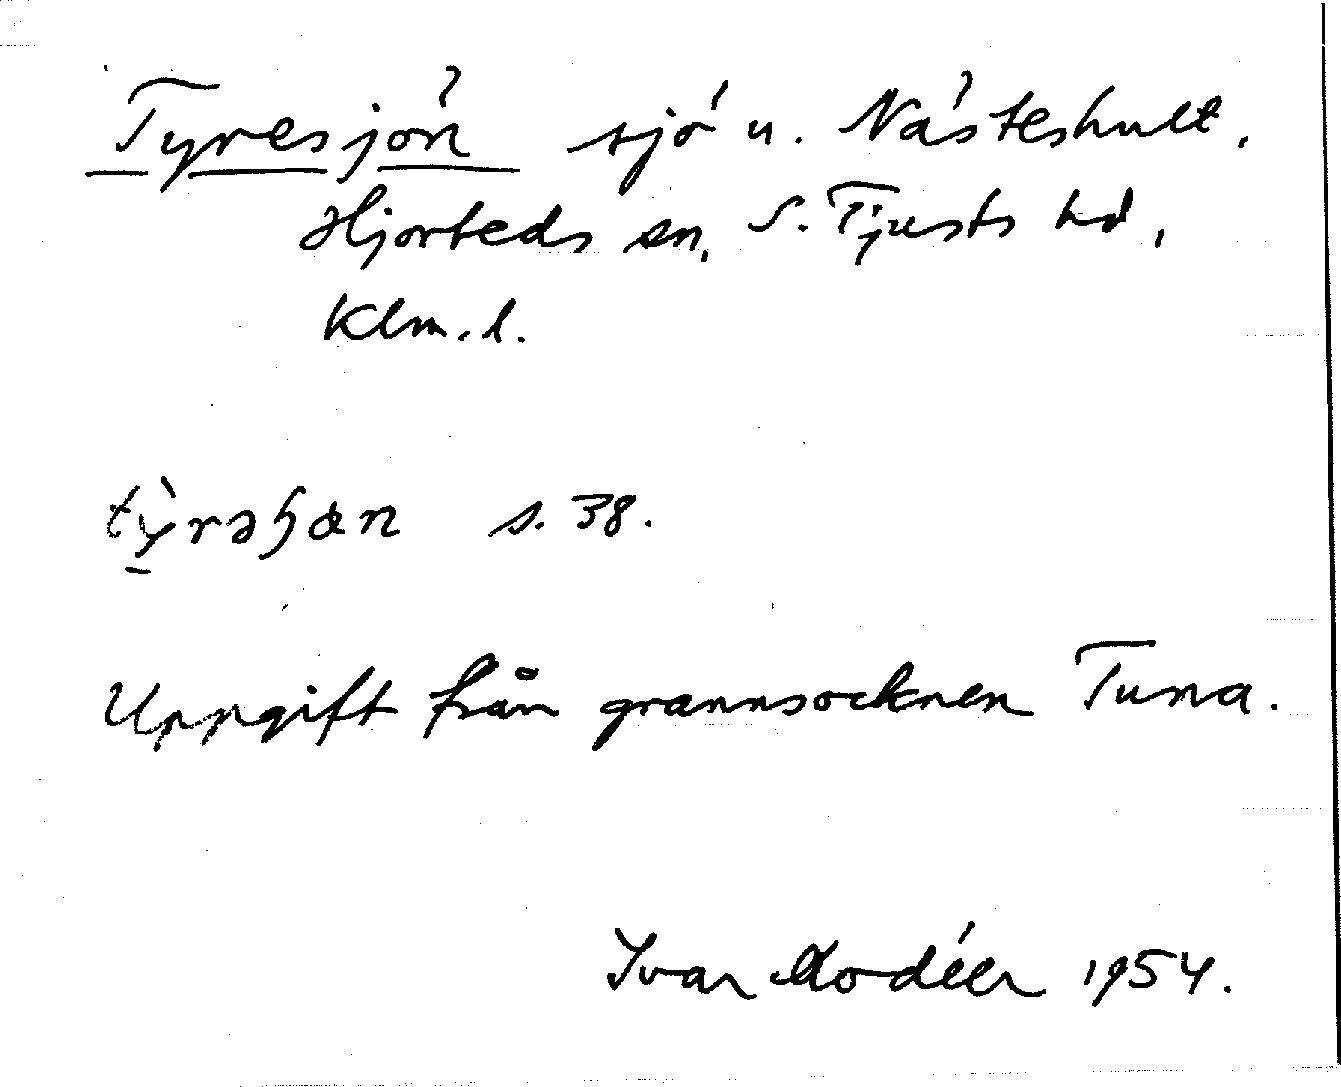 Tyresjön sjö u. Nästeshult,
Hjorteds sn, S. Tjusts hd,
Klm. l.
s. 38.
Uppgift från grannsocknen Tuna.
Ivar Modéer 1954.